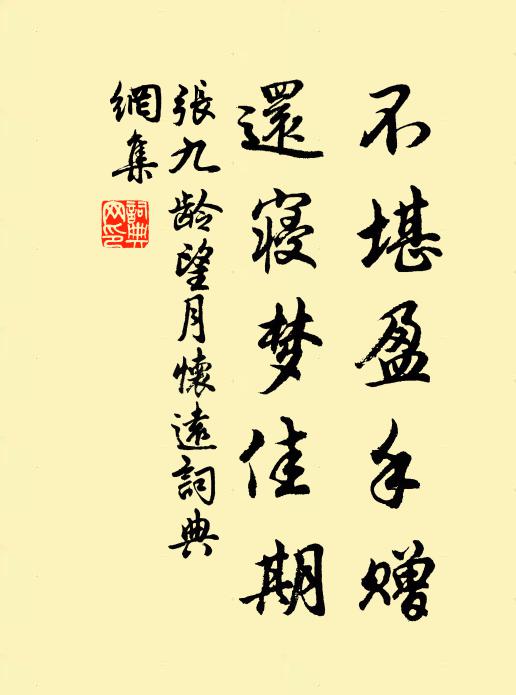 不堪盈手赠
還寝梦佳期
張九龄望月懷遠詞典
網集
詞典
网印